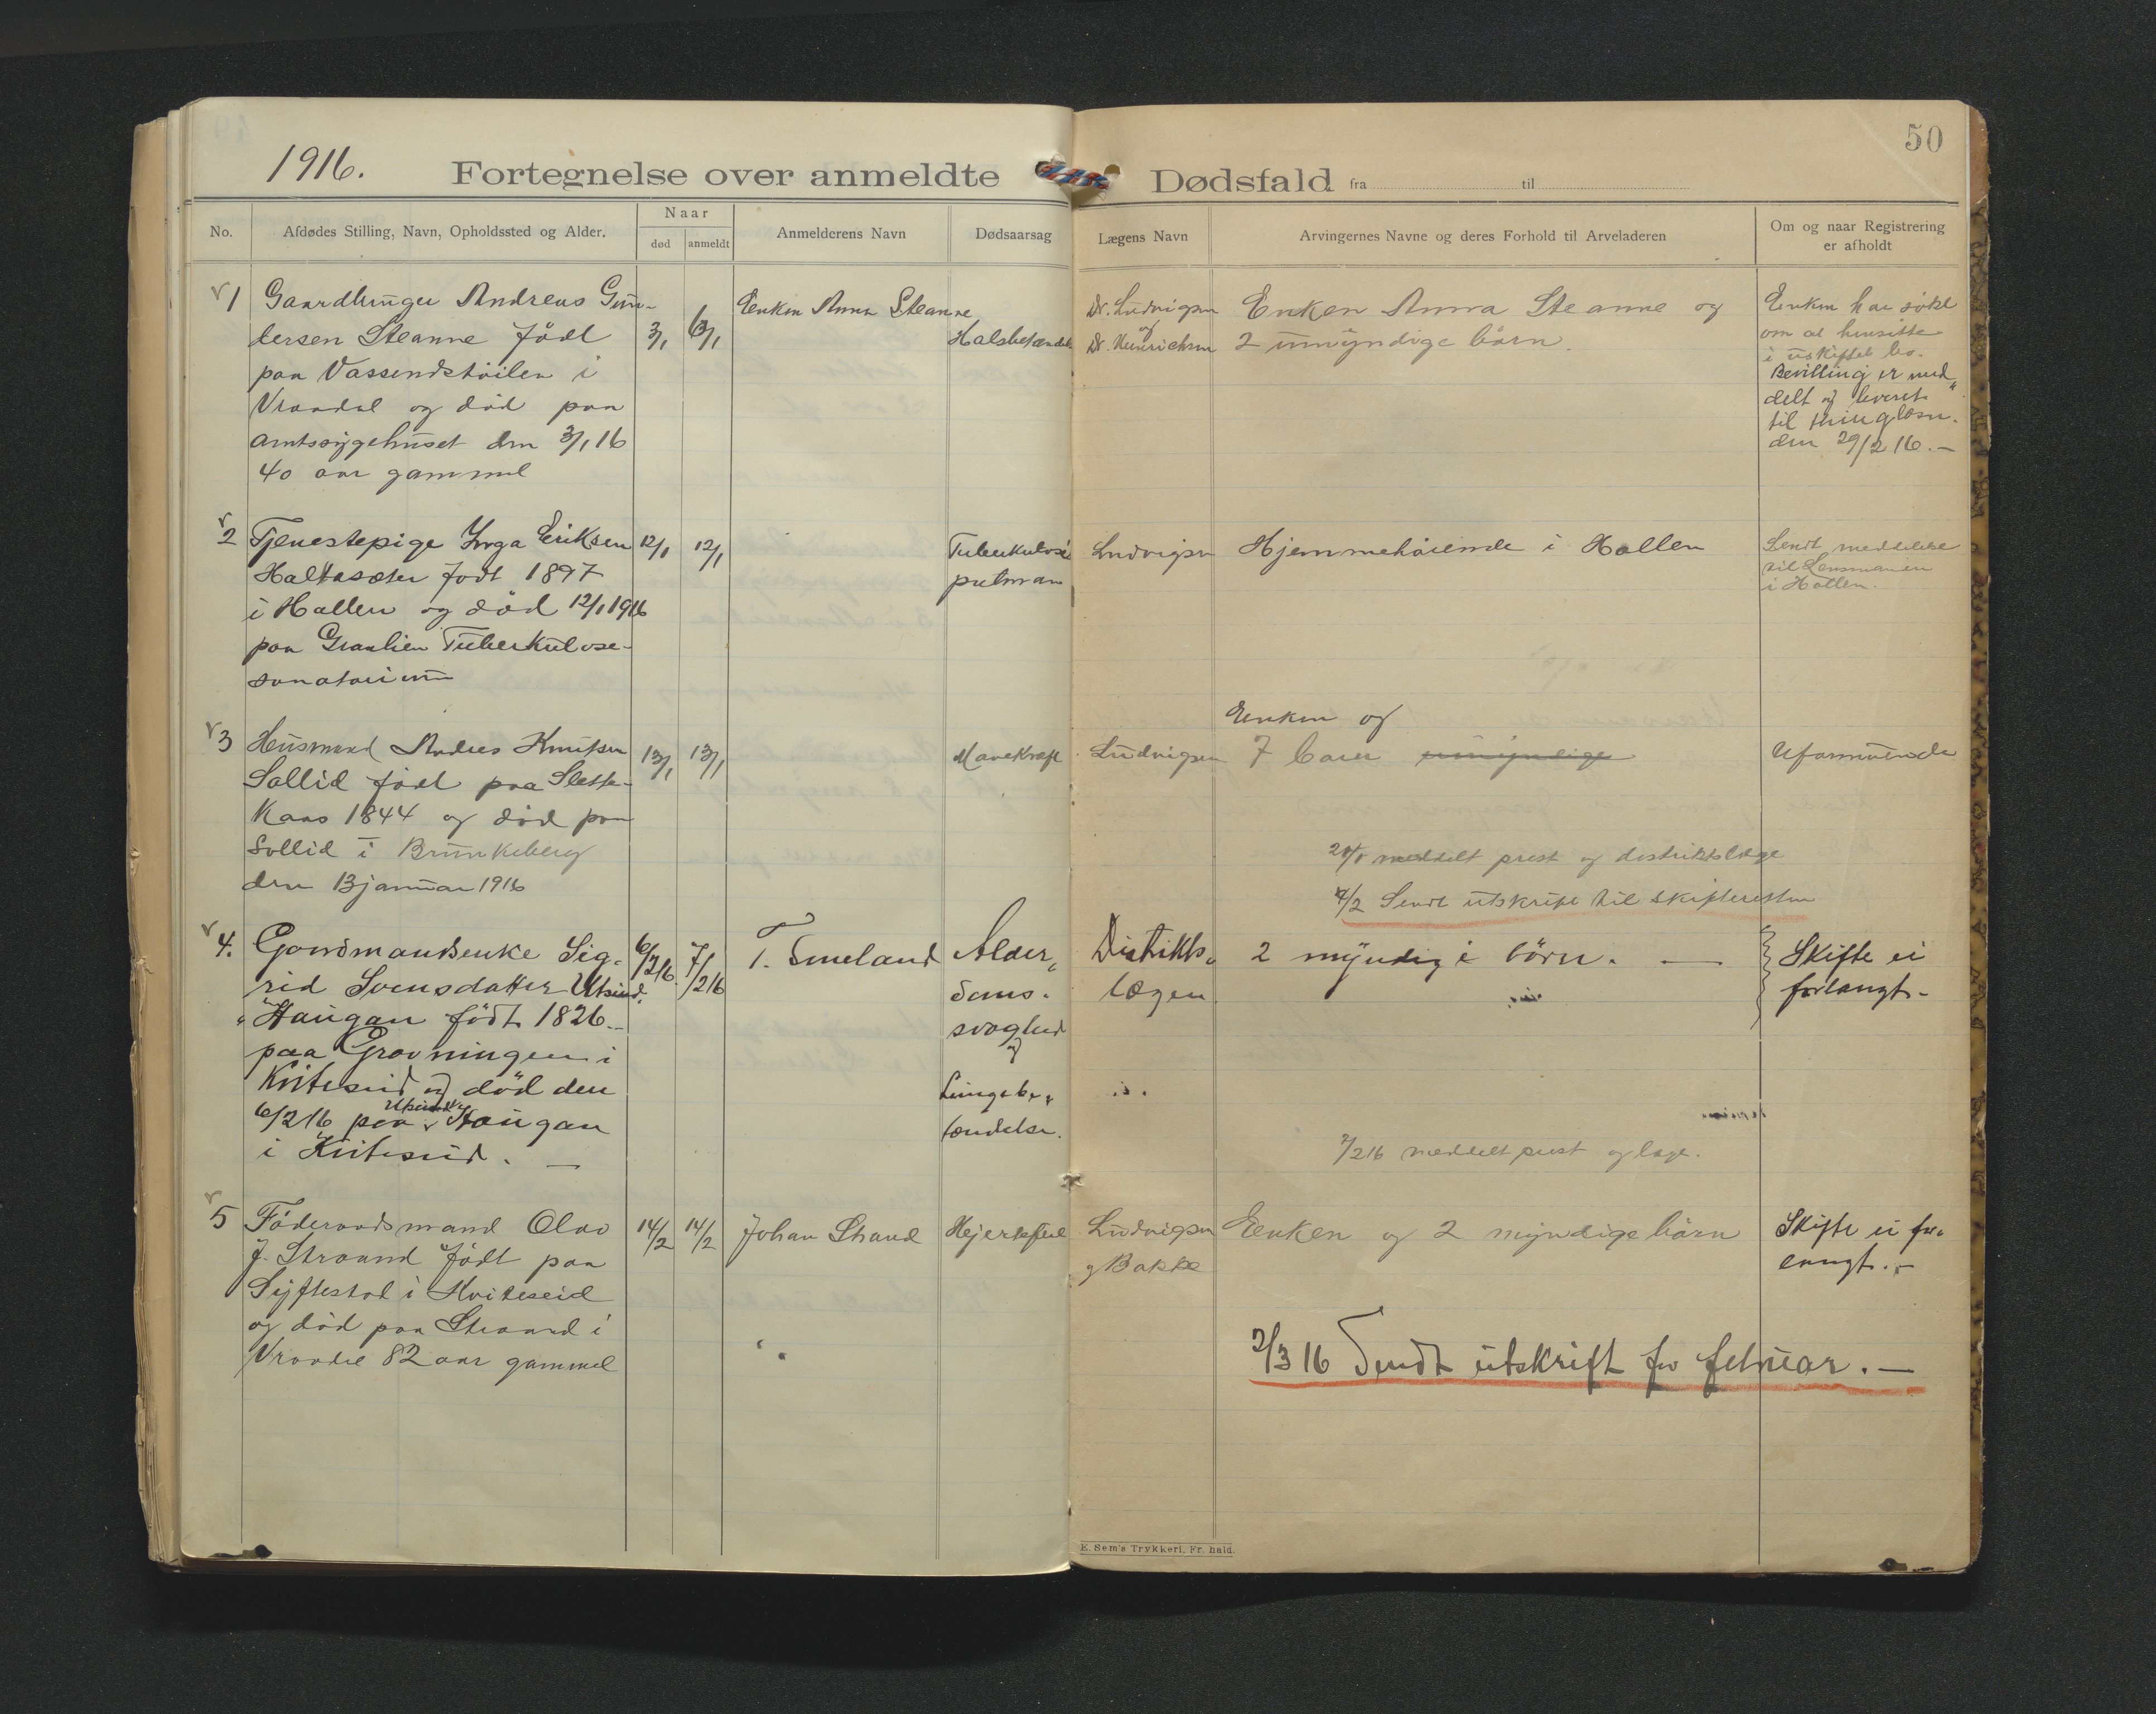 50
1916.
Fortegnelse over anmeldte Dødsfald fra til
No.
Afdødes Stilling, Navn, Opholdssted og Alder.
Naar
død
anmeldt
Anmelderens Navn
Dødsaarsag
Lægens Navn
Arvingernes Navne og deres Forhold til Arveladeren
Om og naar Registrering
er afholdt
1 Gaardbruger Andreas Gun-
dersen Steanne født
paa Vassendstøilen i
Vraadal og död paa
amtssygehuset den 3/1 16
40 aar gammel
3/1
6/1
Enken Anna Steanne
Halsbetændels
Dr. Ludvigsen
og
Dr. Heinrichsen
Enken Anna Steanne og
2 umyndige börn.
Enken har søkt
om at hensitte
i uskiftet bo.
Bevilling er med„
delt og leveret
til thinglæsn.
den 29/2 16.—
2 Tjenestepige Inga Eriksen
Haltasæter født 1897
i Hallen og död 12/1 1916
paa Granlien Tuberkulose-
sanatorium
12/1
12/1
Tuberkulosi
pulman
Ludvigsen
Hjemmehörende i Hallen
Sendt meddelelse
til Lensmanden
i Hallen.
3 Husmand Andres Knutsen
Sollid född paa Slette-
Kaas 1844 og död paa
Sollid i Brunkeberg
den 13 januar 1916
13/1
13/1
Mavekræft
Ludvigsen
Enken og
7 barn umyndige
Uformuende
20/1 meddelt prest og distriktslæge
4/2 Sendt utskrift til skifteretten
4. Gaardmandsenke Sig-
rid Svensdatter Utsund.
Haugan født 1826.-
paa Grovningen i
Kviteseid og död den
6/2 16 paa Utsund. Haugan
i Kviteseid. —
6/2 16.
7/2 16
T. Smeland
Alder„
doms-
svaghed
og
Lungebe„
tændelse.
Distrikts„
lægen
2 myndige börn. —
Skifte ei
forlangt.-
7/2 16 meddelt prest og læge.
5 Föderaadsmand Olav
J. Straand født paa
Syftestad i Kviteseid
og död paa Straand i
Vraadal 82 aar gammel
14/2
14/2
Johan Strand
Hjertefeil
Ludvigsen
og Bakke
Enken og 2 myndige börn
Skifte ei for„
langt.-
2/3 16 Sendt utskrift for februar.—
E. Sem's Trykkeri, Fr. hald.